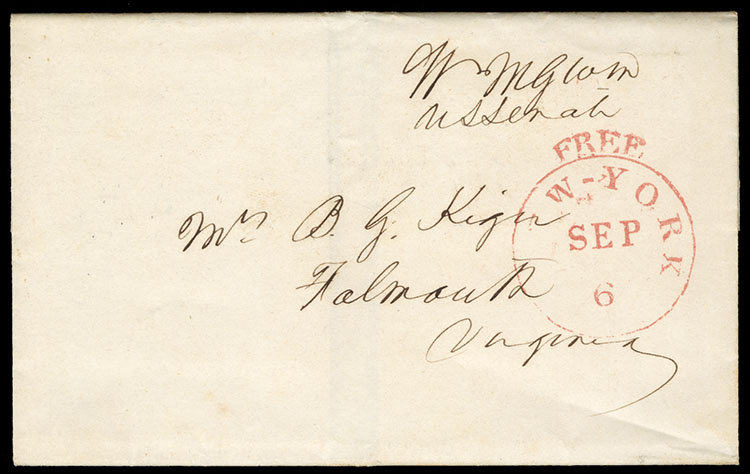 Wm M Gwin
US Senate
FREE
W-YORK
SEP
6
Mrs B. G. Kiger
Falmouth
Virginia